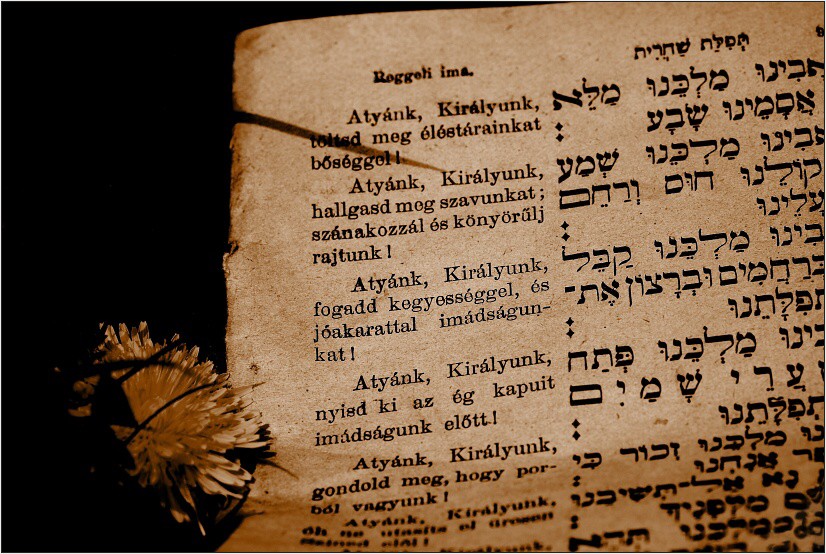 Reggeli ima.
Atyánk, Királyunk,
töltsd meg éléstárainkat
bőséggel!
Atyánk, Királyunk,
hallgasd meg szavunkat;
szánakozzál és könyörülj
rajtunk!
Atyánk, Királyunk,
fogadd kegyességgel, és
jóakarattal imádságun-
kat!
Atyánk, Királyunk,
nyisd ki az ég kapuit
imádságunk előtt!
Atyánk, Királyunk,
gondold meg, hogy por-
ból vagyunk!
Atyánk, Királyunk,
óh ne utasíts el üresen
תְּפִלַּת שַׁחֲרִית
אָבִינוּ מַלְכֵּנוּ מַלֵּא
אֲסָמֵינוּ שָׂבָע
אָבִינוּ מַלְכֵּנוּ שְׁמַע
קוֹלֵנוּ חוּס וְרַחֵם
עָלֵינוּ
אָבִינוּ מַלְכֵּנוּ קַבֵּל
בְּרַחֲמִים וּבְרָצוֹן אֶת־
תְּפִלָּתֵנוּ
אָבִינוּ מַלְכֵּנוּ פְּתַח
שַׁעֲרֵי שָׁמַיִם
תְּפִלָּתֵנוּ
מַלְכֵּנוּ זְכוֹר כִּי
אֲנָחְנוּ
נָא אַל־תְּשִׁיבֵנוּ